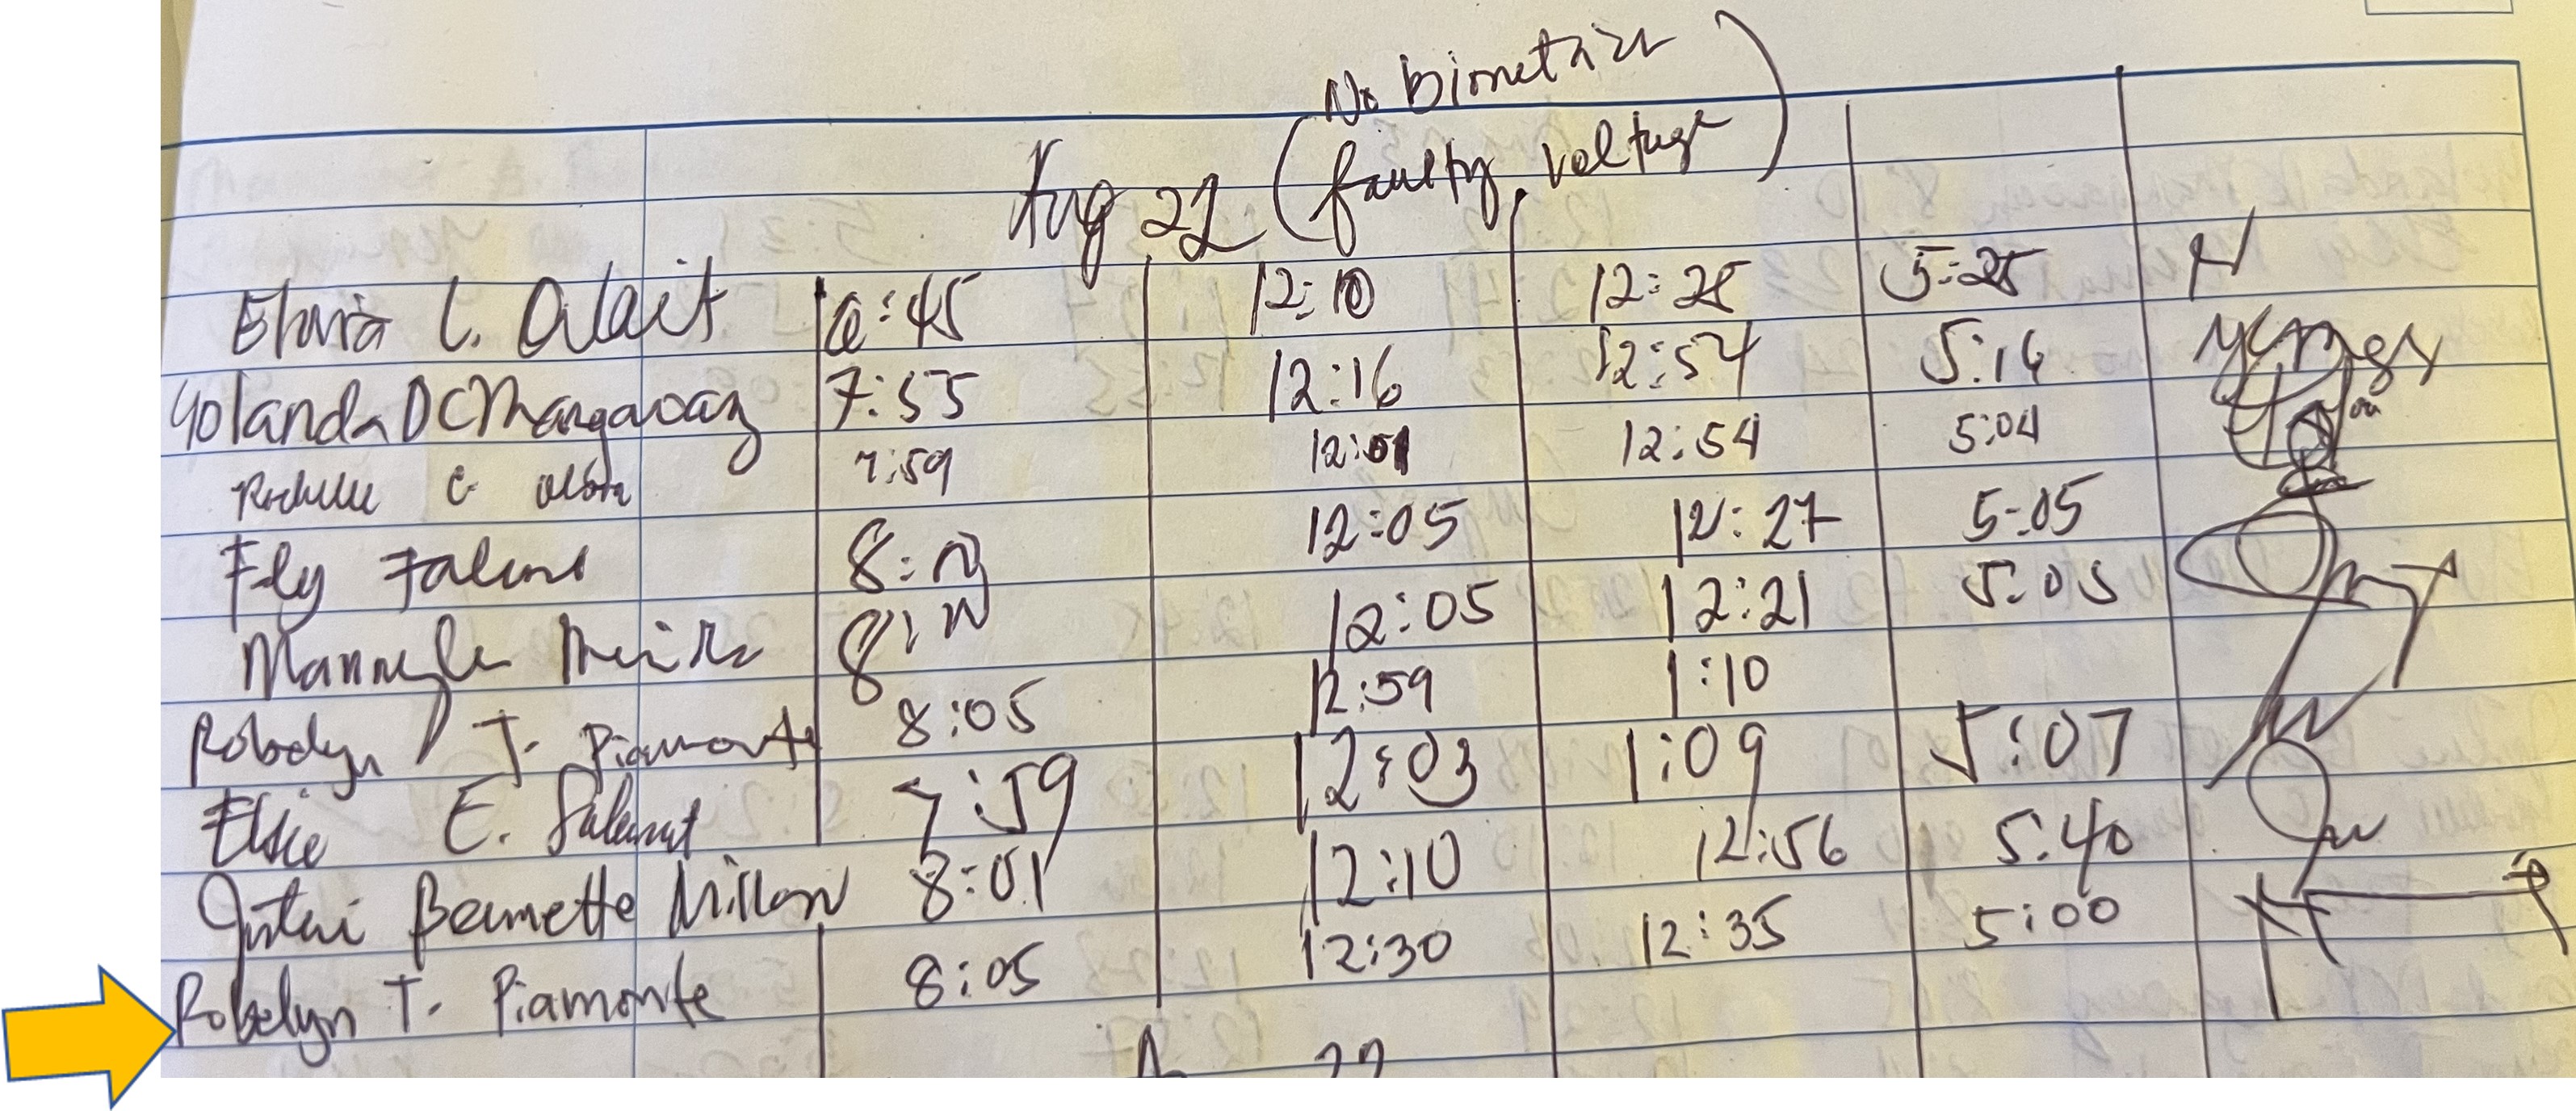 No biometric
Aug 22 (faulty voltage)
Elvira C. 6:45 12:10 12:25 5:25
Yolanda DC Mangaoang 7:55 12:16 12:54 5:16
C. 7:59 12:01 12:54 5:04
Fely 8: 12:05 12:27 5:05
8: 12:05 12:21 5:05
Robelyn T. Piamonte 8:05 12:59 1:10
Elsie E. Salamat 7:59 12:03 1:09 5:07
Bernette Millan 8:01 12:10 12:56 5:40
Robelyn T. Piamonte 8:05 12:30 12:35 5:00